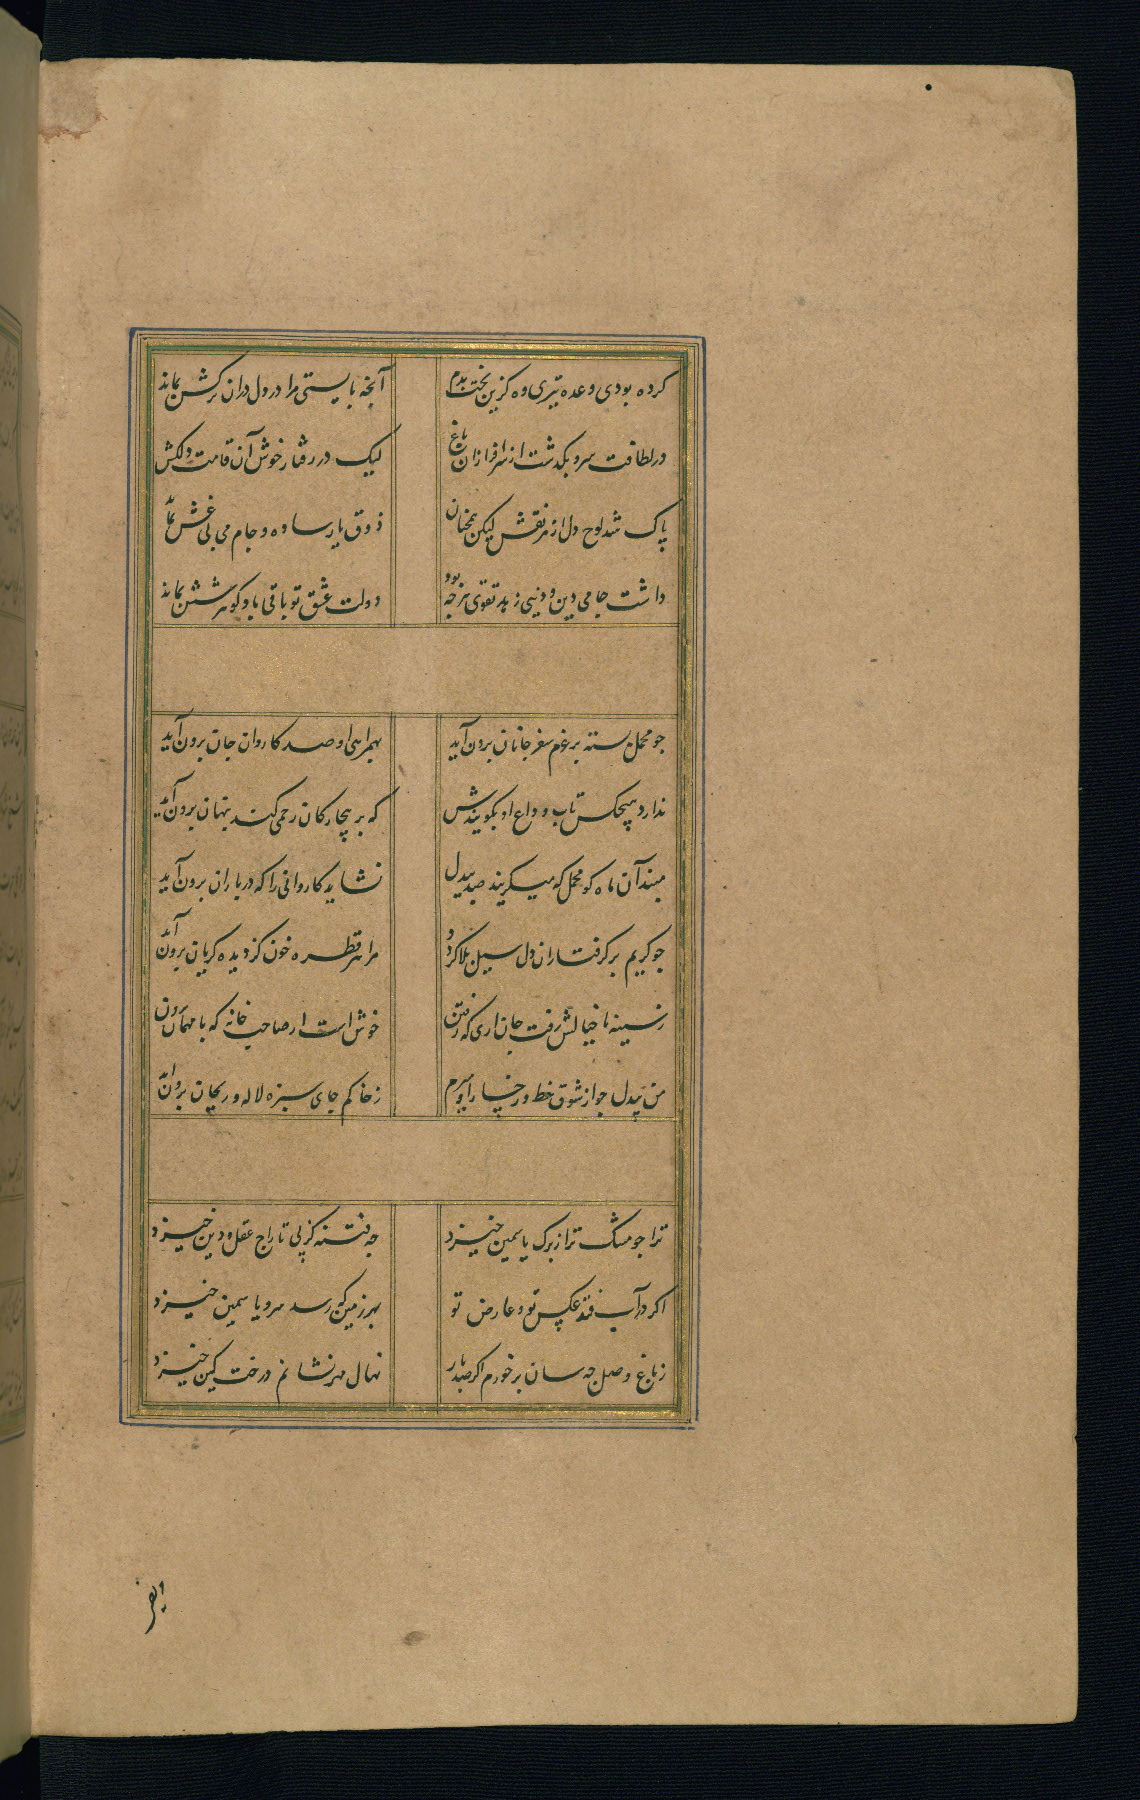 کرده بودی وعده تیری وه کزین بخت بدم
آنچه بایستی مرا در دل دران ترکش نماند
در لطافت سرو بگذشت از سرافرازان باغ
لیک در رفتار خوش آن قامت دلکش نماند
پاک شد لوح دل از هر نقش لیکن همچنان
ذوق یار ساده و جام می بی غش نماند
داشت جامی دین و دنیی زهد و تقوی هر چه بود
دولت عشق تو باقی باد کو هر شش نماند
جو محمل بسته بر عزم سفر جانان برون آید
بهمراهی او صد کاروان جان برون آید
ندارد هیچکس تاب وداع او بکویندش
که بر بیچارکان رحمی کند پنهان برون آید
مبند آن ماه کو محمل که میکریند صد بیدل
نشاید کاروانی را که در باران برون آید
جو کریم بر کرفتاران دل سیل بلا کردد
مرا هر قطره خون کز دیده کریان برون آید
ز سینه با خیالش رفت جان آری که رفتن
خوش است ار صاحب خانه که با مهمان برون
من بیدل جو از شوق خط و رخسار او میرم
ز خاکم جای سبزه لاله و ریحان برون آید
ترا جو مشک تر از برک یاسمین خیزد
چه فتنه کز پی تاراج عقل و دین خیزد
اکر در آب فتد عکس قد و عارض تو
بهر زمین که رسد سرو یاسمین خیزد
ز باغ وصل چه سان بر خورم اکر صد بار
نهال مهر نشانم درخت کین خیزد